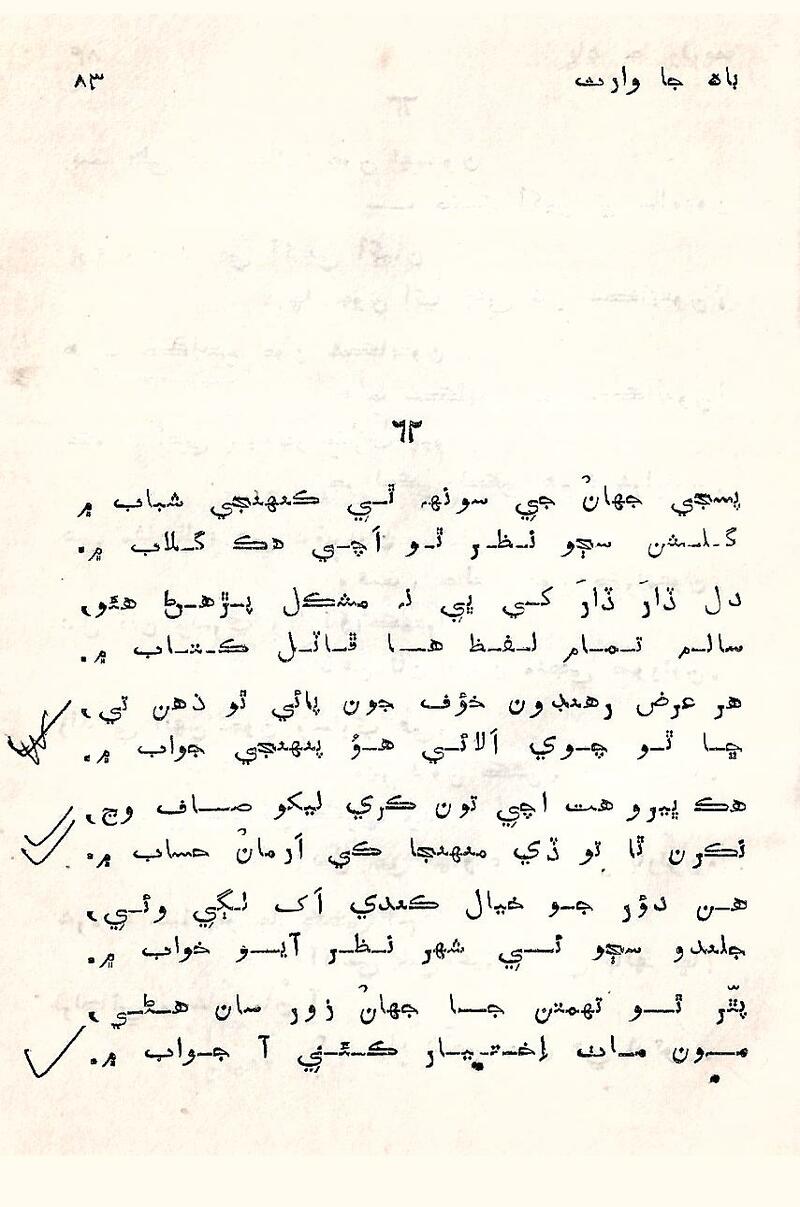 باهه جا وارث
۸۳
٦٣
پسجي جهانُ جي سونهه ٿي ڪنهنجي شباب ۾
گلشن سڄو نظر ٿو اَچي هڪ گلاب ۾.
دل ڌارَ ڌارَ ڪئي پئي نہ مشڪل پڙهڻ هئو،
سالم تمام لفظ هئا ڦاٽل ڪتاب ۾.
هر عرض رهنديون خوف جون پائي ٿو ذهن تي،
ڇا ٿو چوي اَلائي هوُ پنهنجي جواب ۾.
هڪ ڀيرو هت اچي تون ڪري ليکو صاف وڃ،
نڪرن ٿا تو ڏي منهنجا ڪي اَرمانُ حساب ۾.
هن دؤر جو خيال ڪندي اَک لڳي وئي،
جلندو سڄو ئي شهر نظر آيو خواب ۾.
پٿّر ٿو تهمتن جا جهانُ زور سان هڻي،
مون مات اِختيار ڪئي آ جواب ۾.